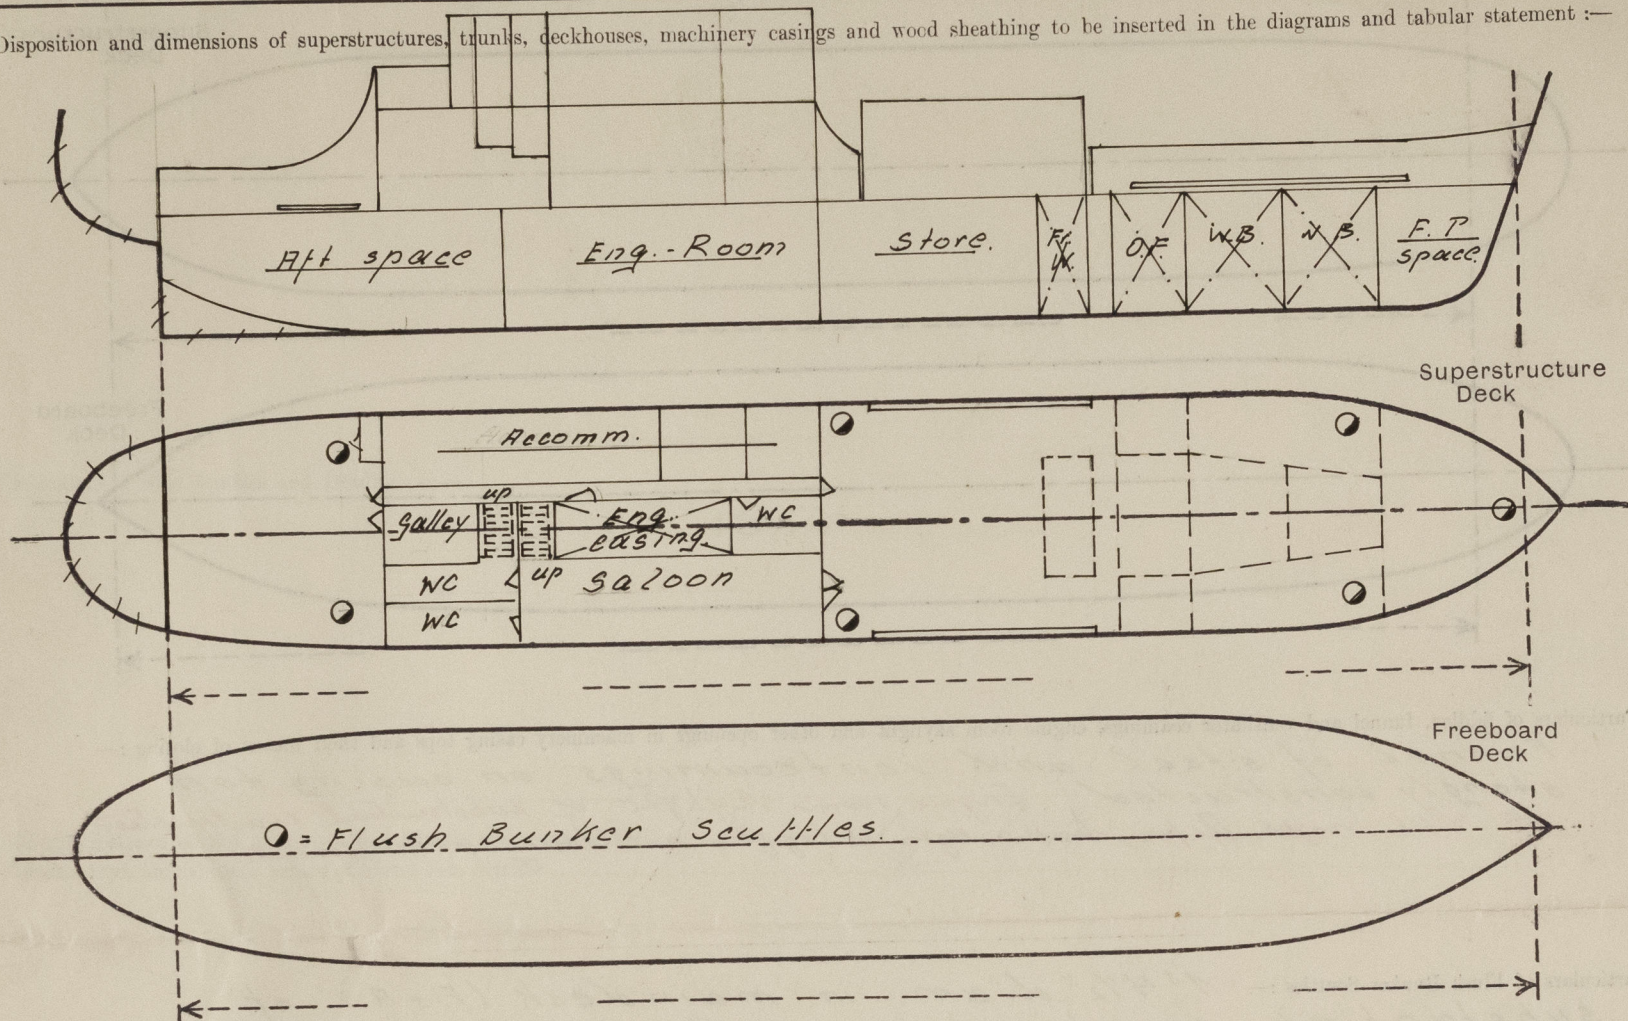 Disposition and dimensions of superstructures, trunks, deckhouses, machinery casings and wood sheathing to be inserted in the diagrams and tabular statement :—
Aft space
Eng.-Room
Store.
Fr. W.
O.F.
W.B.
W.B.
F. P.
space.
Superstructure
Deck
Accomm.
up
Galley
Eng.
casing
WC
up
Saloon
WC
WC
Freeboard
Deck
= Flush Bunker Scuttles.